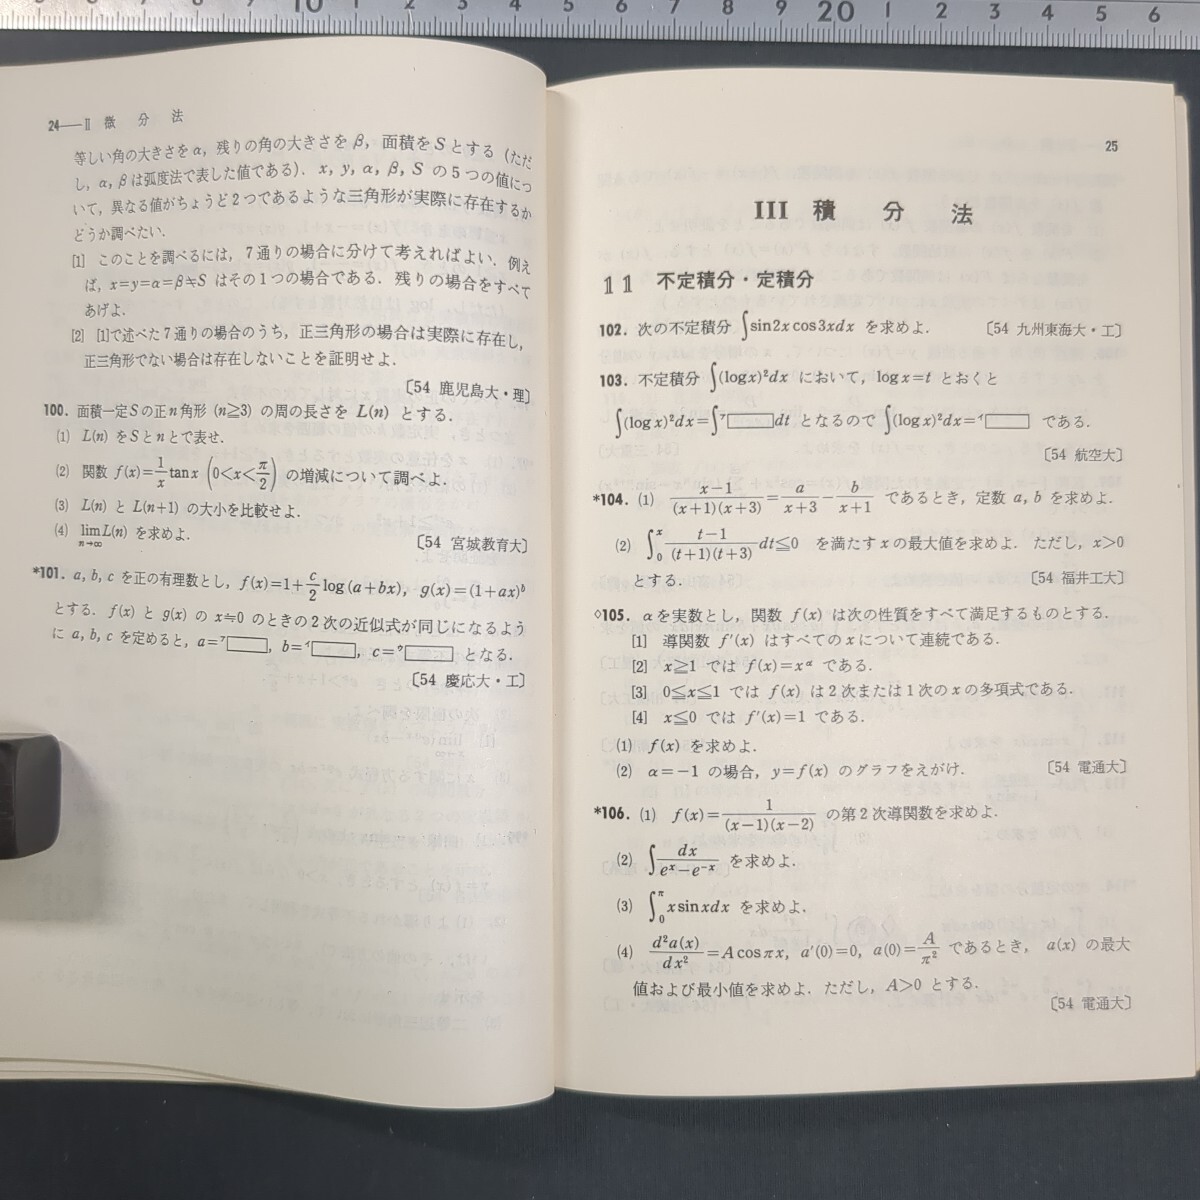 10 1 2 3 4 5 6 7 8 9 20 1 2 3 4 5 6
24——II 微 分 法
等しい角の大きさをα, 残りの角の大きさをβ, 面積をSとする (ただ
し, α, βは弧度法で表した値である). x, y, α, β, S の5つの値につ
いて, 異なる値がちょうど2つであるような三角形が実際に存在するか
どうか調べたい.
[1] このことを調べるには, 7通りの場合に分けて考えればよい. 例え
ば, x=y=α=β≠S はその1つの場合である. 残りの場合をすべて
あげよ.
[2] [1]で述べた7通りの場合のうち, 正三角形の場合は実際に存在し,
正三角形でない場合は存在しないことを証明せよ.
〔54 鹿児島大・理〕
100. 面積一定Sの正n角形 (n≧3) の周の長さを L(n) とする.
(1) L(n) をSとnとで表せ.
(2) 関数 f(x)=1/x tan x (0<x<π/2) の増減について調べよ.
(3) L(n) と L(n+1) の大小を比較せよ.
(4) lim n→∞ L(n) を求めよ.
〔54 宮城教育大〕
*101. a, b, c を正の有理数とし, f(x)=1+c/2 log(a+bx), g(x)=(1+ax)ᵇ
とする. f(x) と g(x) の x≒0 のときの2次の近似式が同じになるよう
に a, b, c を定めると, a=ア□, b=イ□, c=ウ□ となる.
〔54 慶応大・工〕
25
III 積 分 法
11 不定積分・定積分
102. 次の不定積分 ∫sin2x cos3x dx を求めよ.
〔54 九州東海大・工〕
103. 不定積分 ∫(log x)²dx において, log x=t とおくと
∫(log x)²dx=∫ア□dt となるので ∫(log x)²dx=イ□ である.
〔54 航空大〕
*104. (1) (x−1)/((x+1)(x+3))=a/(x+3)−b/(x+1) であるとき, 定数 a, b を求めよ.
(2) ∫₀ˣ (t−1)/((t+1)(t+3)) dt≦0 を満たす x の最大値を求めよ. ただし, x>0
とする.
〔54 福井工大〕
◇105. αを実数とし, 関数 f(x) は次の性質をすべて満足するものとする.
[1] 導関数 f′(x) はすべての x について連続である.
[2] x≧1 では f(x)=xᵅ である.
[3] 0≦x≦1 では f(x) は2次または1次の x の多項式である.
[4] x≦0 では f′(x)=1 である.
(1) f(x) を求めよ.
(2) α=−1 の場合, y=f(x) のグラフをえがけ.
〔54 電通大〕
*106. (1) f(x)=1/((x−1)(x−2)) の第2次導関数を求めよ.
(2) ∫dx/(eˣ−e⁻ˣ) を求めよ.
(3) ∫₀^π x sin x dx を求めよ.
(4) d²a(x)/dx²=A cos πx, a′(0)=0, a(0)=A/π² であるとき, a(x) の最大
値および最小値を求めよ. ただし, A>0 とする.
〔54 電通大〕